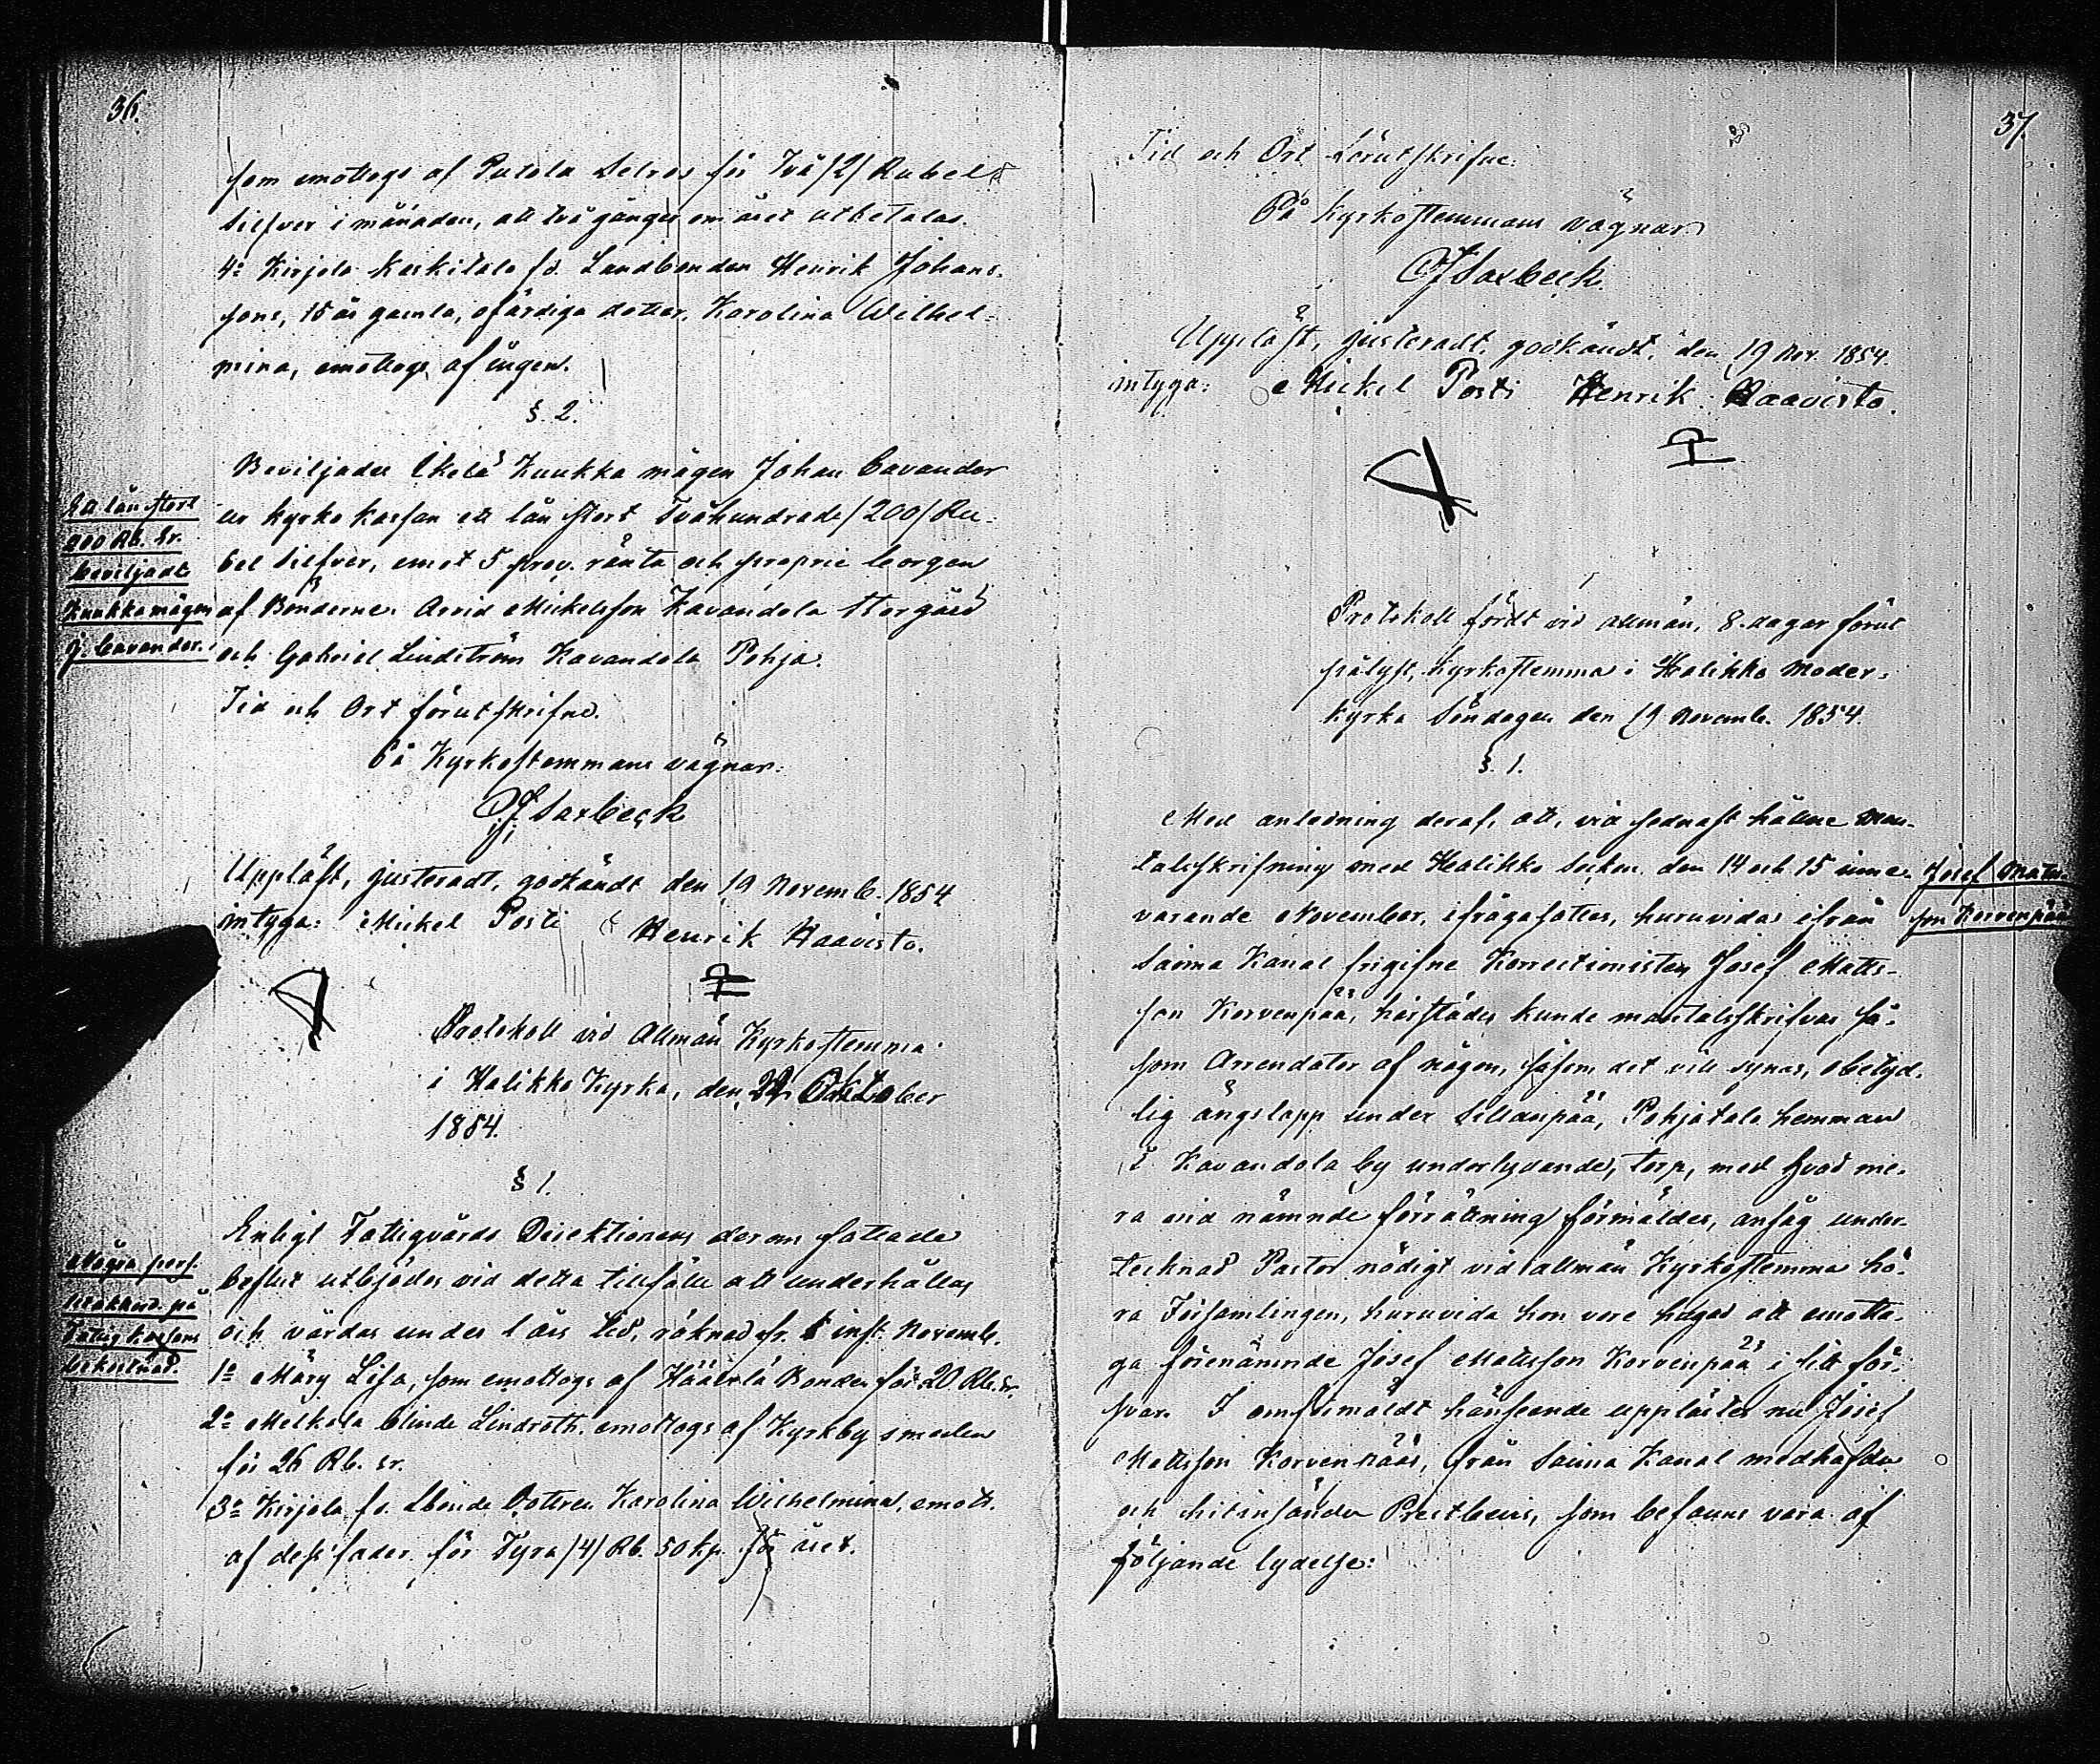 36.
som emottogs af Putola Selros för Två /2/ Rubel
Silfver i månaden, att två gånger om året utbetalas.
4:o Kirjola Kaskitalo fd. Landbonden Henrik Johans-
sons, 15 år gamla, ofärdiga dotter, Karolina Wilhel-
mina, emottogs af ingen.
§. 2.
Beviljades Ikelä Kuukka mågen Johan Cavander
ur Kyrko kassan ett lån stort Tvåhundrade /200/ Ru-
bel Silfver, emot 5 proc. ränta och proprie borgen
af Bönderne Arvid Mickelsson Kavandola Storgård
och Gabriel Lindström Kavandola Pohja.
Ett lån stort
200 Rb. Sr.
beviljadt
Kuukka mågen
J. Cavander.
Tid och Ort förutskrifne.
På Kyrkostemmans vägnar:
Isaxbeck
Uppläst, justeradt, godkändt den 19 Novemb. 1854
intyga: Mickel Posti Henrik Haavisto.
Protokoll vid Allmän Kyrkostemma
i Halikko Kyrka, den 22 Oktober
1854.
§ 1.
Enligt Fattigvårds Direktionens derom fattade
beslut utbjödos vid detta tillfälle att underhållas
och vårdas under 1 års tid, räknad fr. 1 inst. Novemb.
1:o Märy Lisa, som emottogs af Häärlä Bonden för 20 Rb. Sr.
2:o Melkola blinde Lindroth, emottogs af Kyrkby smeden
för 26 Rb. Sr.
3:o Kirjola fd. Lbonde Dottren Karolina Wilhelmina, emott.
af dess fader för Fyra /4/ Rb. 50 kp. för året.
Några pers.
på
Fattig Kassans
bekostnad.
37.
Tid och Ort Förutskrifne:
På Kyrkostemmans vägnar
Isaxbeck
Uppläst, justeradt, godkändt, den 19 Nov. 1854.
intyga: Mickel Posti Henrik Haavisto.
Protokoll fördt vid allmän, 8. dagar förut
pålyst, Kyrkostemma i Halikko Moder-
kyrka Söndagen den 19 Novemb. 1854.
§. 1.
Med anledning deraf, att, vid sednast hållne Man-
talsskrifning med Halikko Socken den 14 och 15 inne-
varande November, ifrågasattes, huruvida ifrån
Saima Kanal frigifne Korrectionisten Josef Matts-
son Korvenpää, härstädes kunde mantalsskrifvas så-
som Arrendator af någon, såsom det vill synas, obetyd-
lig ängslapp under Sillanpää, Pohjatalo hemman
i Kavandola by underlydande, torp, med hvad me-
ra vid nämnde förrättning förmäldes, ansåg under-
tecknad Pastor nödigt vid allmän Kyrkostemma hö-
ra Församlingen, huruvida hon vore hugad att emotta-
ga förenämnde Josef Mattsson Korvenpää i sitt för-
svar. I omförmäldt hänseende upplästes nu Josef
Mattsson Korvenpääs, från Saima Kanal medhafda
och hitinsända Prestbevis, som befanns vara af
följande lydelse:
Josef Matts-
son Korvenpää